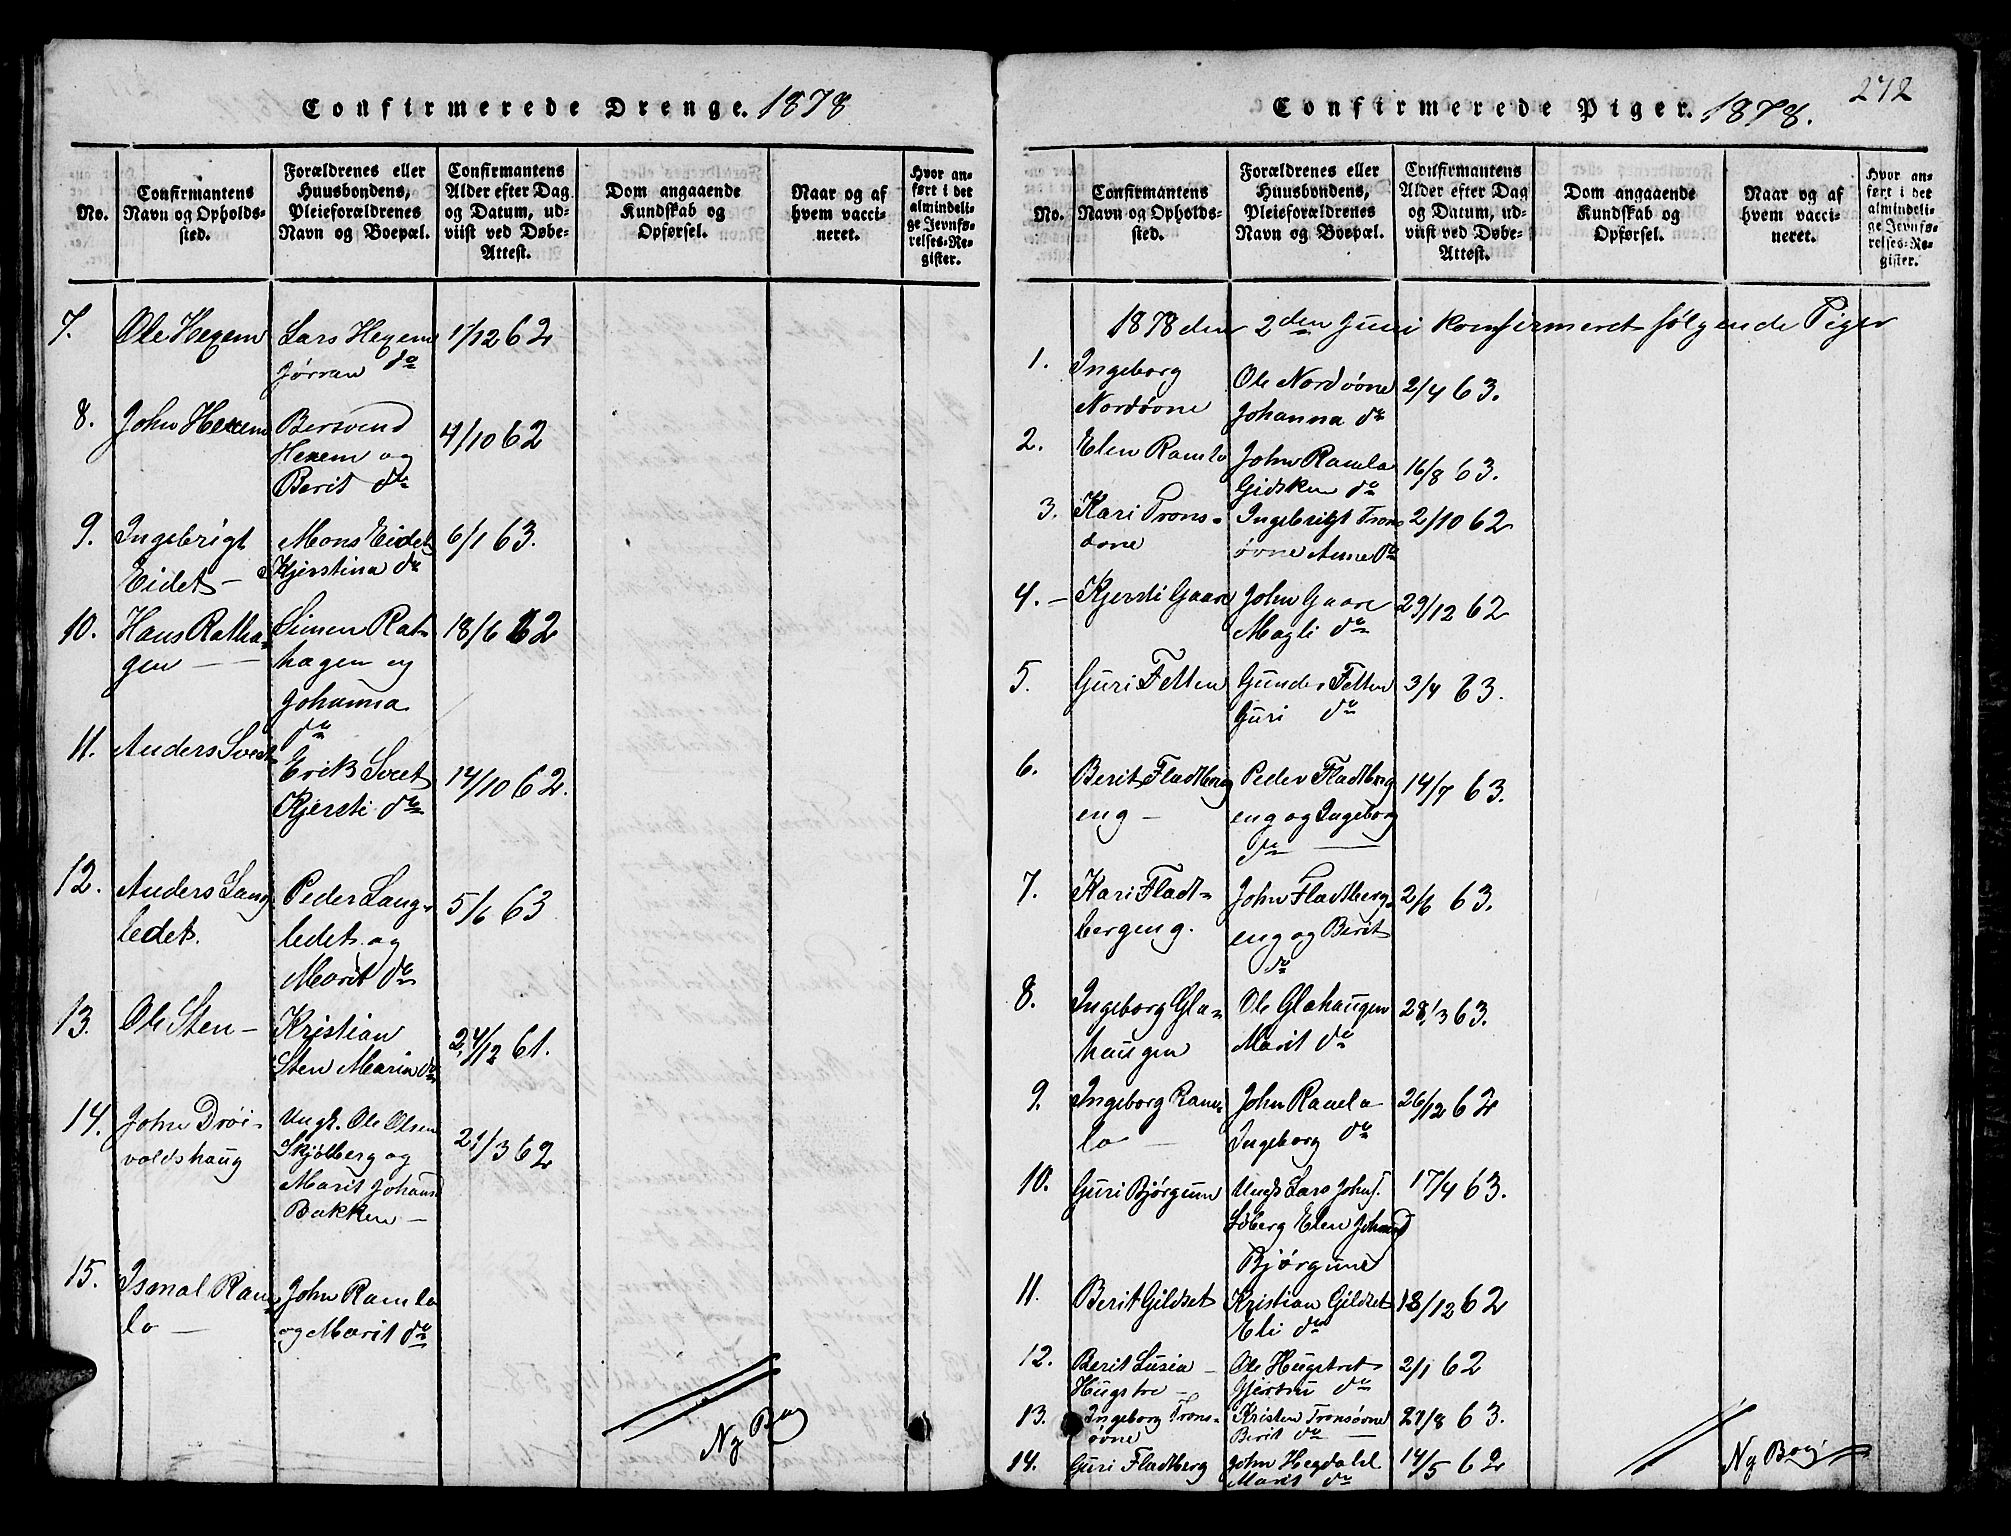 Confirmerede Drenge. 1878
No.
Confirmantens Navn og Opholdssted.
Forældrenes eller Huusbondens, Pleieforældrenes Navn og Boepæl.
Confirmantens Alder efter Dag og Datum, udviist ved Døbe-Attest.
Dom angaaende Kundskab og Opførsel.
Naar og af hvem vaccineret.
Hvor anført i det almindelige Jevnførelses-Register.
7. Ole Hexem Lars Hexem 1/12 62
Jørran do
8. John Hexem Bersvend 4/10 62
Hexem og
Berit do
9. Ingebrigt Mons Eidet 6/1 63.
Eidet - Kjerstina do
10. Hans Rathagen Simen Rat- 18/6 62
hagen og
Johanna
do
11. Anders Sveet
Erik Sveet 14/10 62.
Kjersti do
12. Anders Lang Peder Lang- 5/6 63
ledet. ledet og
Marit do
13. Ole Sten - Kristian 24/12 61.
Sten Maria do
14. John Drøi- Ungk. Ole Olsen 21/3 62
voldshaug Skjølberg og
Marit Johans
Bakken -
15. Ismal Ram John Ramlo
lo - og Marit do
Ny Bog
Confirmerede Piger. 1878.
272
No.
Confirmantens Navn og Opholdssted.
Forældrenes eller Huusbondens, Pleieforældrenes Navn og Boepæl.
Confirmantens Alder efter Dag og Datum, udviist ved Døbe-Attest.
Dom angaaende Kundskab og Opførsel.
Naar og af hvem vaccineret.
Hvor anført i det almindelige Jevnførelses-Register.
1878 den 2den Juni konfirmeret følgende Piger
1. Ingeborg Ole Nordøvne 2/4 63.
Nordøvne Johanna do
2. Elen Ramlo John Ramlo 16/8 63.
Gidsken do
3. Kari Trons- Ingebrigt Trons 2/10 62
øvne øvne Anne do
4. - Kjersti Gaare John Gaare 29/12 62
Magli do
5. Guri Fetten Gunder Fetten 3/4 63.
Guri do
6. Berit Fladtberg Peder Fladtberg 14/7 63.
eng - eng og Ingeborg
do
7. Kari Fladt- John Fladtberg- 2/6 63.
bergeng. eng og Berit
do
8. Ingeborg Gla- Ole Glahaugen 28/3 63.
haugen Marit do
9. Ingeborg Ram- John Ramlo 26/12 62
lo - Ingeborg do
10. Guri Bjørgum Ungk Lars Johns. 17/4 63.
Soberg Elen Johansd
Bjørgum
11. Berit Gildset Kristian Gildset 18/12 62
Eli do
12. Berit Lusia - Ole Hugstret 2/1 62
Hugstre - Gjertru do
13. Ingeborg Trons- Kristen Tronsøvne 27/8 63.
øvne Berit do -
14. Guri Fladtberg John Hegdahl 14/5 62
Marit do
Ny Bog